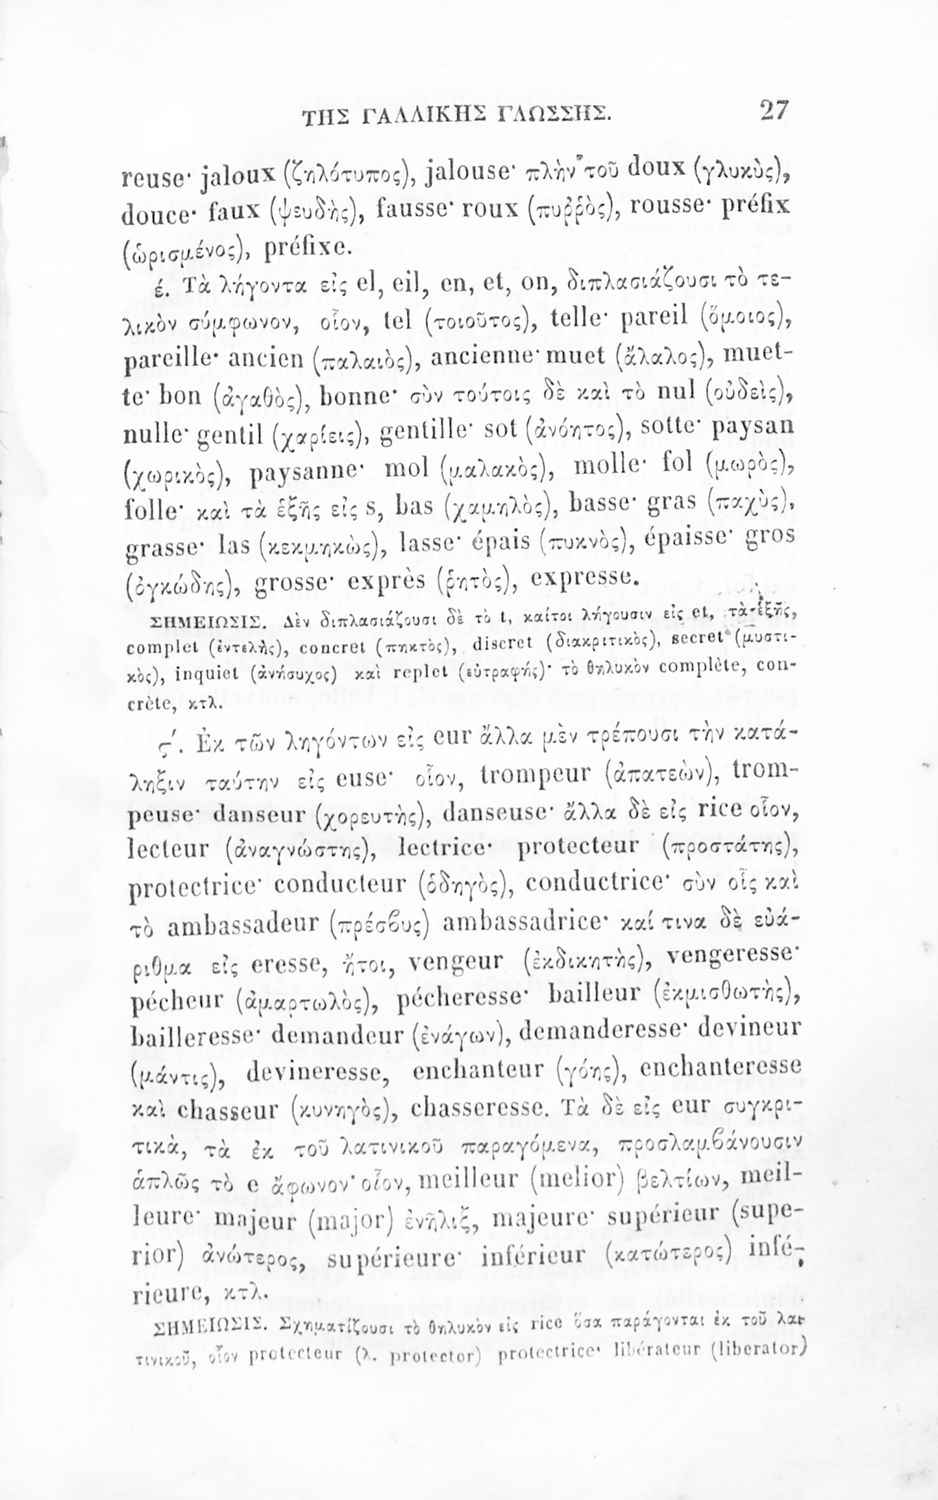 ΤΗΣ ΓΑΛΛΙΚΗΣ ΓΛΩΣΣΗΣ. 27
reuse· jaloux (ζηλότυπος), jalouse· πλὴν τοῦ doux (γλυκὺς),
douce· faux (ψευδὴς), fausse· roux (πυῤῥὸς), rousse· préfix
(ὡρισμένος), préfixe.
έ. Τὰ λήγοντα εἰς el, eil, en, et, on, διπλασιάζουσι τὸ τε-
λικὸν σύμφωνον, οἷον, tel (τοιοῦτος), telle· pareil (ὅμοιος),
pareille· ancien (παλαιὸς), ancienne· muet (ἄλαλος), muet-
te· bon (ἀγαθὸς), bonne· σὺν τούτοις δὲ καὶ τὸ nul (οὐδεὶς),
nulle· gentil (χαρίεις), gentille· sot (ἀνόητος), sotte· paysan
(χωρικὸς), paysanne· mol (μαλακὸς), molle· fol (μωρὸς),
folle· καὶ τὰ ἑξῆς εἰς s, bas (χαμηλὸς), basse· gras (παχὺς),
grasse· las (κεκμηκὼς), lasse· épais (πυκνὸς), épaisse· gros
(ὀγκώδης), grosse· exprès (ῥητὸς), expresse.
ΣΗΜΕΙΩΣΙΣ. Δὲν διπλασιάζουσι δὲ τὸ t, καίτοι λήγουσιν εἰς et, τὰ ἑξῆς,
complet (ἐντελὴς), concret (πηκτὸς), discret (διακριτικὸς), secret (μυστι-
κὸς), inquiet (ἀνήσυχος) καὶ replet (εὐτραφής)· τὸ θηλυκὸν complète, con-
crète, κτλ.
ϛ′. Ἐκ τῶν ληγόντων εἰς eur ἄλλα μὲν τρέπουσι τὴν κατά-
ληξιν ταύτην εἰς euse· οἷον, trompeur (ἀπατεὼν), trom-
peuse· danseur (χορευτὴς), danseuse· ἄλλα δὲ εἰς rice οἷον,
lecteur (ἀναγνώστης), lectrice· protecteur (προστάτης),
protectrice· conducteur (ὁδηγὸς), conductrice· σὺν οἷς καὶ
τὸ ambassadeur (πρέσϐυς) ambassadrice· καί τινα δὲ εὐά-
ριθμα εἰς eresse, ἤτοι, vengeur (ἐκδικητὴς), vengeresse·
pécheur (ἁμαρτωλὸς), pécheresse· bailleur (ἐκμισθωτὴς),
bailleresse· demandeur (ἐνάγων), demanderesse· devineur
(μάντις), devineresse, enchanteur (γόης), enchanteresse
καὶ chasseur (κυνηγὸς), chasseresse. Τὰ δὲ εἰς eur συγκρι-
τικὰ, τὰ ἐκ τοῦ λατινικοῦ παραγόμενα, προσλαμϐάνουσιν
ἁπλῶς τὸ e ἄφωνον· οἷον, meilleur (melior) βελτίων, meil-
leure· majeur (major) ἐνῆλιξ, majeure· supérieur (supe-
rior) ἀνώτερος, supérieure· inférieur (κατώτερος) infé-
rieure, κτλ.
ΣΗΜΕΙΩΣΙΣ. Σχηματίζουσι τὸ θηλυκὸν εἰς rice ὅσα παράγονται ἐκ τοῦ λα-
τινικοῦ, οἷον protecteur (λ. protector) protectrice· libérateur (liberator)